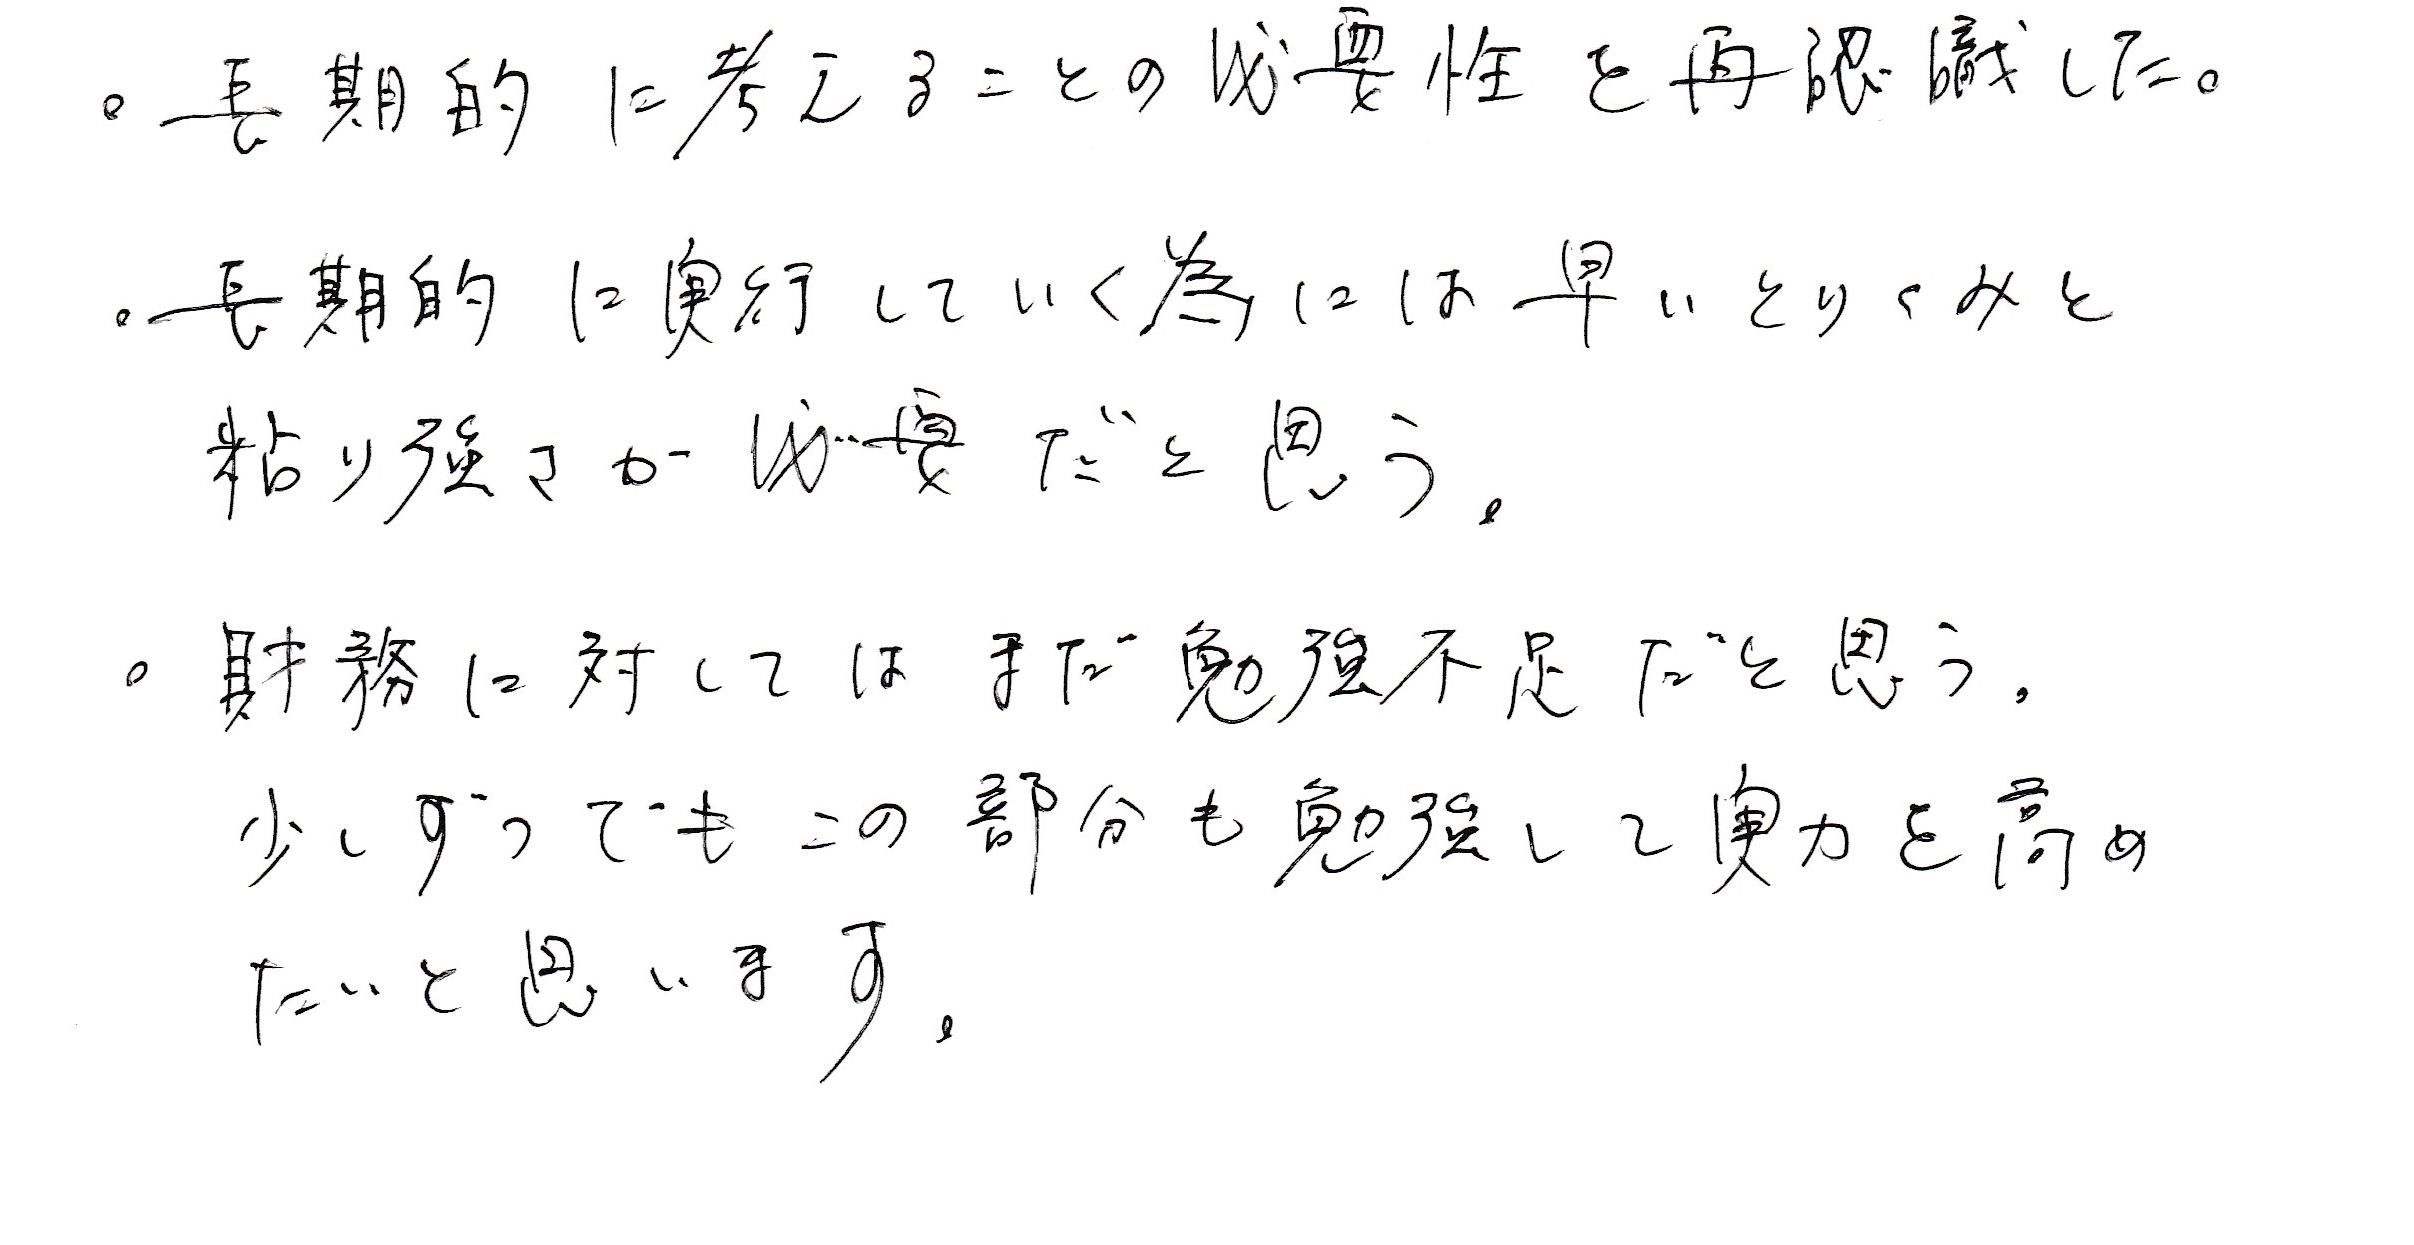 。長期的に考えることの必要性を再認識した。
。長期的に実行していく為には早いとりくみと
粘り強さが必要だと思う。
。財務に対してはまだ勉強不足だと思う。
少しずつでもこの部分も勉強して実力を高め
たいと思います。